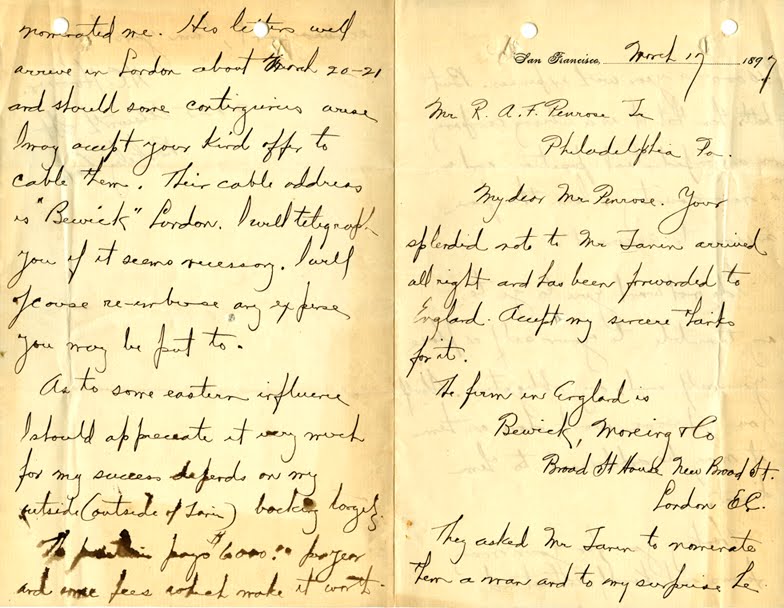 San Francisco, March 17 1897
Mr R. A. F. Penrose Jr
Philadelphia Pa.
My dear Mr Penrose. Your
splendid note to Mr Janin arrived
all right and has been forwarded to
England. Accept my sincere thanks
for it.
The firm in England is
Bewick, Moreing & Co
Broad St House New Broad St.
London E.C.
They asked Mr Janin to nominate
them a man and to my surprise he
nominated me. His letters will
arrive in London about March 20-21
and should some contingencies arise
I may accept your kind offer to
cable them. Their cable address
is "Bewick" London. I will telegraph
you if it seems necessary. I will
of course re-imburse any expense
you may be put to.
As to some eastern influence
I should appreciate it very much
for my success depends on my
outside (outside of Janin) backing largely.
The position pays $6000.00 per year
and some fees which make it worth